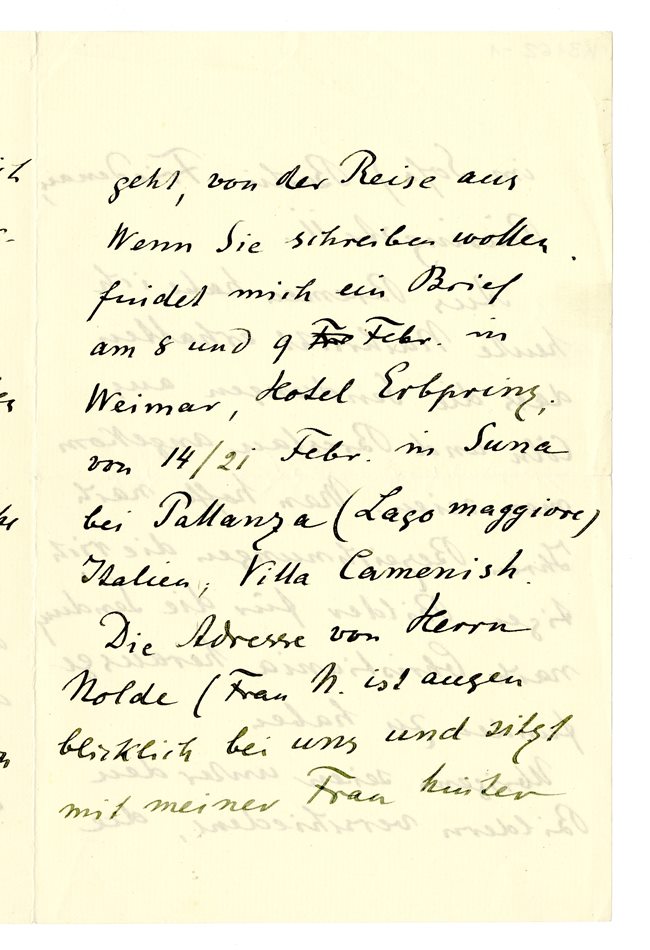 geht, von der Reise aus
Wenn Sie schreiben wollen.
findet mich ein Brief
am 8 und 9 Febr. in
Weimar, Hotel Erbprinz,
von 14/21 Febr. in Suna
bei Pallanza (Lago maggiore)
Italien, Villa Camenish.
Die Adresse von Herrn
Nolde (Frau N. ist augen
blicklich bei uns und sitzt
mit meiner Frau hinter